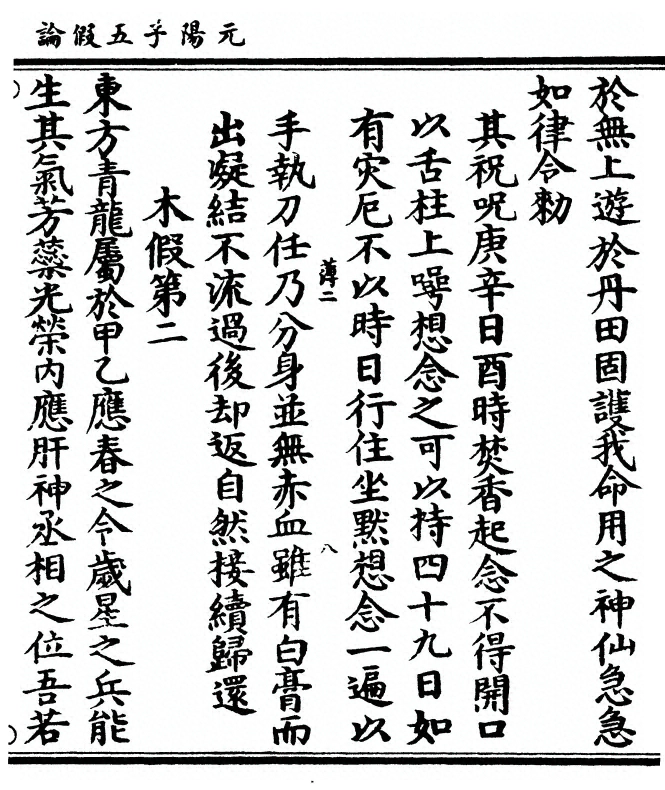 元陽子五假論
於無上遊於丹田固護我命用之神仙急急
如律令勑
其祝呪庚辛日酉時焚香起念不得開口
以舌柱上噿想念之可以持四十九日如
有灾厄不以時日行住坐默想念一遍以
薄二
手執刀任乃分身並無赤血雖有白膏而
八
出凝結不流過後却返自然接續歸還
木假第二
東方青龍屬於甲乙應春之令歲星之兵能
生其氣芳蘂光榮內應肝神丞相之位吾若